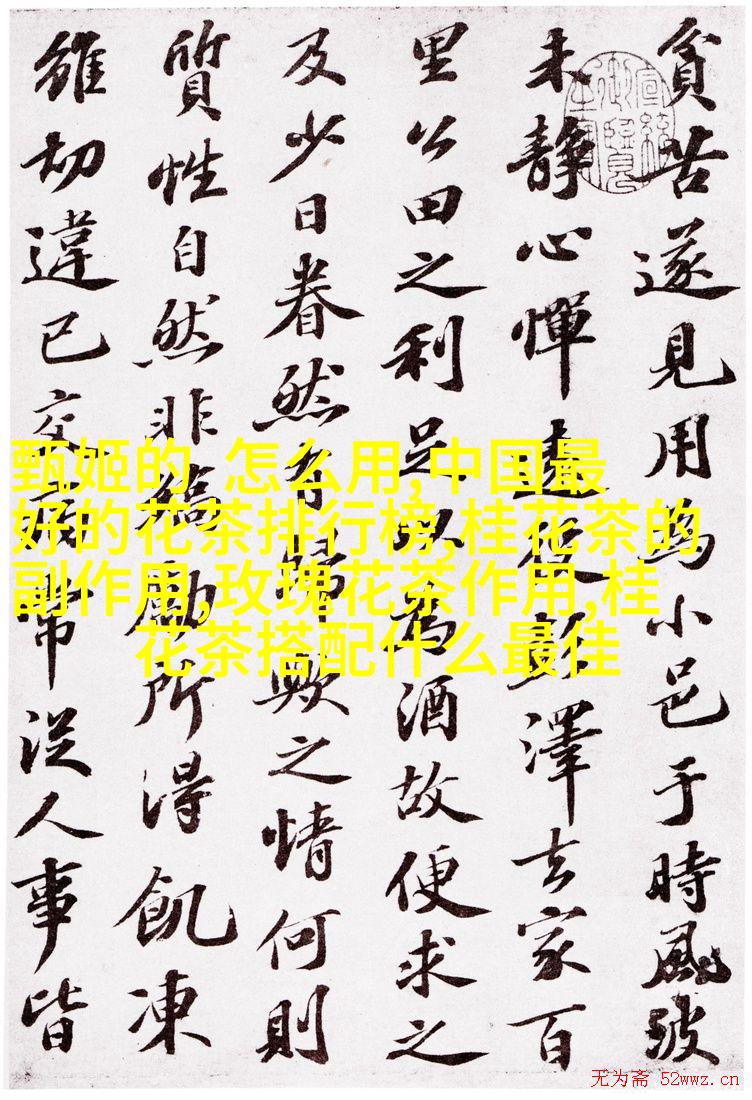 貧苦遂見用為小邑于時風波
未靜心憚遠役彭澤去家百
里公田之利足以為酒故便求之
及少日眷然有歸歟之情何則
質性自然非矯勵所得飢凍
雖切違己交病常從人事皆
宣統御覽之寶
甄姬的,怎么用,中国最
好的花茶排行榜,桂花茶的
副作用,玫瑰花茶作用,桂
花茶搭配什么最佳
无为斋 52wwz.cn